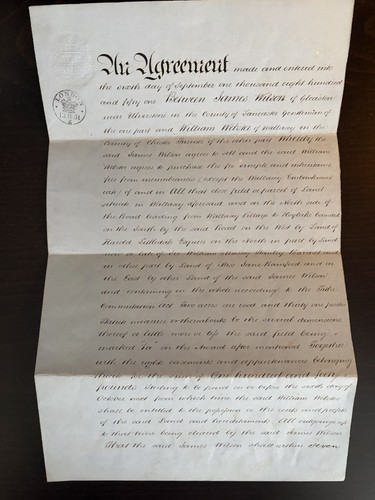 LONDON
An Agreement made and entered into
the sixth day of September one thousand eight hundred
and fifty one Between James Wilson of Gleaston
near Ulverston in the County of Lancaster Gentleman of
the one part and William Webster of Wallasey in the
County of Chester Farmer of the other part Whereby the
said James Wilson agrees to sell and the said William
Webster agrees to purchase the fee simple and inheritance
free from incumbrances (except the Wallasey Embankment
) of and in All that close field or parcel of Land
situate in Wallasey aforesaid and on the North side of
the Road leading from Wallasey Village to Hoylake bounded
on the South by the said Road on the West by Land of
Harold Littledale Esquire on the North in part by Land
now or late of Sir William Stanley Baronet and
in other part by Land of Miss Jane and on
the East by other Land of the said James Wilson
and containing in the whole according to the Tithe
Commutation Act Two acres one rood and thirty one perches
Statute measure or thereabouts be the several dimensions
thereof a little more or less the said field being
marked in the Award after mentioned Together
with the rights easements and appurtenances belonging
thereto for the sum of One hundred and fifty
pounds Sterling to be paid on or before the sixth day of
October next from which time the said William Webster
shall be entitled to the possession or the rents and profits
of the said Land and hereditaments All outgoings up
to that time being cleared by the said James Wilson
That the said James Wilson shall within seven